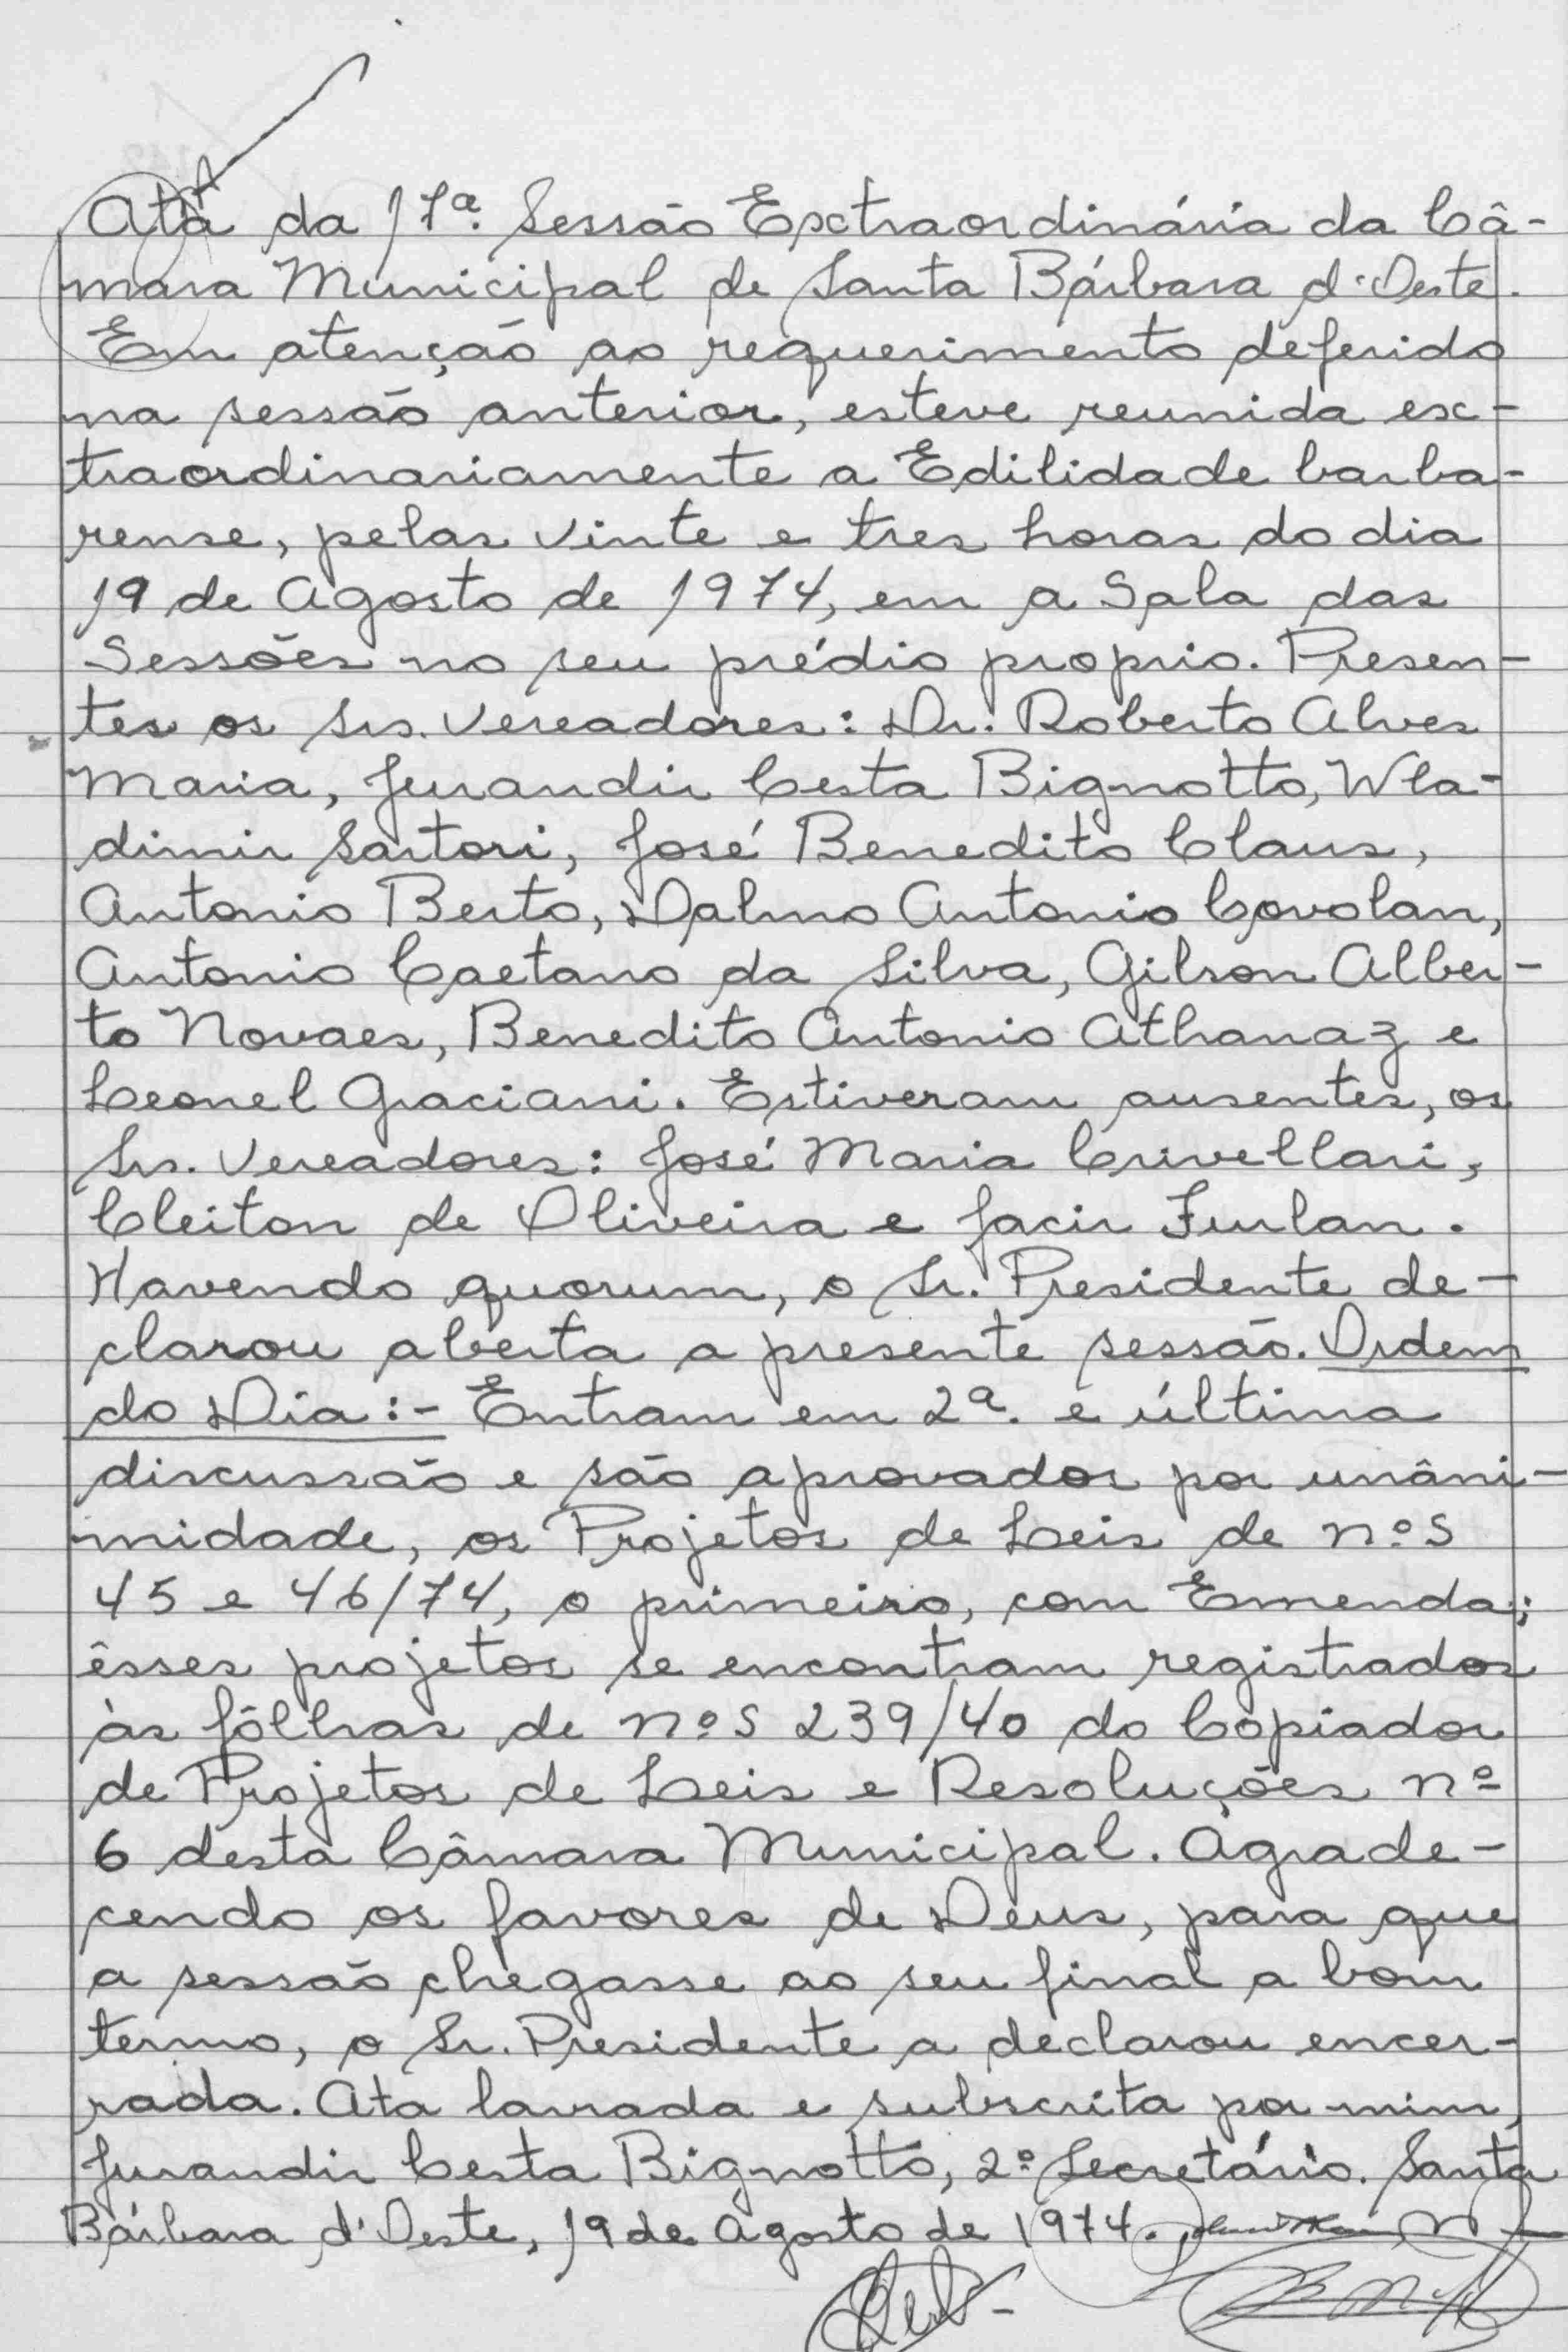 Ata da 17ª. Sessão Extraordinária da Câ-
mara Municipal de Santa Bárbara d'Oeste.
Em atenção ao requerimento deferido
na sessão anterior, esteve reunida ex-
traordinariamente a Edilidade barba-
rense, pelas vinte e tres horas do dia
19 de Agosto de 1974, em a Sala das
Sessões no seu prédio proprio. Presen-
tes os srs. Vereadores: Dr. Roberto Alves
Maria, Jurandir Certa Bignotto, Wla-
dimir Sartori, José Benedito Claus,
Antonio Berto, Dalmo Antonio Covolan,
Antonio Caetano da Silva, Gilson Alber-
to Novaes, Benedito Antonio Athanaz e
Leonel Graciani. Estiveram ausentes, os
Srs. Vereadores: José Maria Crivellari,
Cleiton de Oliveira e Jacir Furlan.
Havendo quorum, o Sr. Presidente de-
clarou aberta a presente sessão. Ordem
do Dia :- Entram em 2ª. e última
discussão e são aprovados por unâni-
midade, os Projetos de Leis de nºs
45 e 46/74, o primeiro, com Emenda;
êsses projetos se encontram registrados
às fôlhas de nºs 239/40 do Copiador
de Projetos de Leis e Resoluções nº
6 desta Câmara Municipal. Agrade-
cendo os favores de Deus, para que
a sessão chegasse ao seu final a bom
termo, o Sr. Presidente a declarou encer-
rada. Ata lavrada e subscrita por mim,
Jurandir Certa Bignotto, 2º Secretário. Santa
Bárbara d'Oeste, 19 de Agosto de 1974.